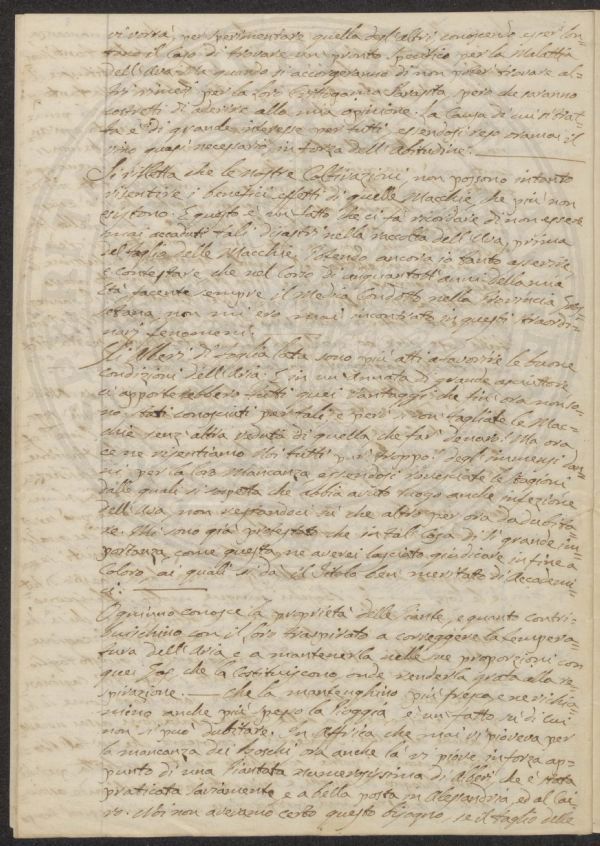 vi vorrà, per sperimentare quella degl'altri conoscendo esser lon-
tano il Caso di trovare un pronto specifico per la Malattia
dell'Uva. Ma quando si accorgeranno di non poter trovare al-
tri rimedj per la loro saranno
costretti di aderire alla mia opinione. La Causa di cui si trat-
ta è di grande interesse per tutti, essendosi reso oramai il
vino quasi necessario in forza dell'abitudine.
Si rifletta che le nostre Coltivazioni non possono intanto
risentire i benefici effetti di quelle Macchie, che più non
esistono. E questo è un fatto che ci fa ricordare di non essere
mai accaduti tali disastri nella raccolta dell'Uva, prima
del taglio delle Macchie. Potendo ancora io tanto asserire
e contestare che nel Corso di cinquantott'anni della mia
Età facente sempre il Medico Condotto nella Provincia
non mi ero mai incontrato in questi straordi-
narj Fenomeni.
Gli Alberi di foglia lata sono più atti a favorire le buone
condizioni dell'Aria: E in un'Annata di grande
ci apporterebbero tutti quei vantaggi che fin ora non so-
no stati conosciuti per tali e però si son tagliate le Mac-
chie senz'altra veduta di quella che far denari. Ma ora
ce ne risentiamo Noi tutti pur troppo degl'immensi dan-
ni, per la loro Mancanza essendosi rovesciate le stagioni
dalle quali si sospetta che abbia avuto luogo anche infezione
dell'Uva non restandoci su che altro per ora da dubita-
re. Mi sono già protestato che in tal Cosa di sì grande im-
portanza come questa, ne averei lasciato giudicare infine a
Coloro, ai quali si dà il titolo ben meritato di Accademi-
ci.
Ognuno conosce la proprietà delle Piante, e quanto contri-
buischino con il loro traspirato a correggere la tempera-
tura dell'Aria e a mantenerla nelle sue proporzioni con
quei Gas che la costituiscono, onde renderla grata alla re-
spirazione. Che la mantenghino più fresca e ne richia-
mino anche più spesso la Pioggia è un fatto su di cui
non si può dubitare. In Affrica che mai vi pioveva per
la mancanza dei Boschi ora anche là vi piove in forza ap-
punto di una Piantata numerosissima di Alberi che è stata
praticata saviamente e a bella posta in Alessandria, ed al Cai-
ro. Noi non avevamo certo questo bisogno, se il taglio delle